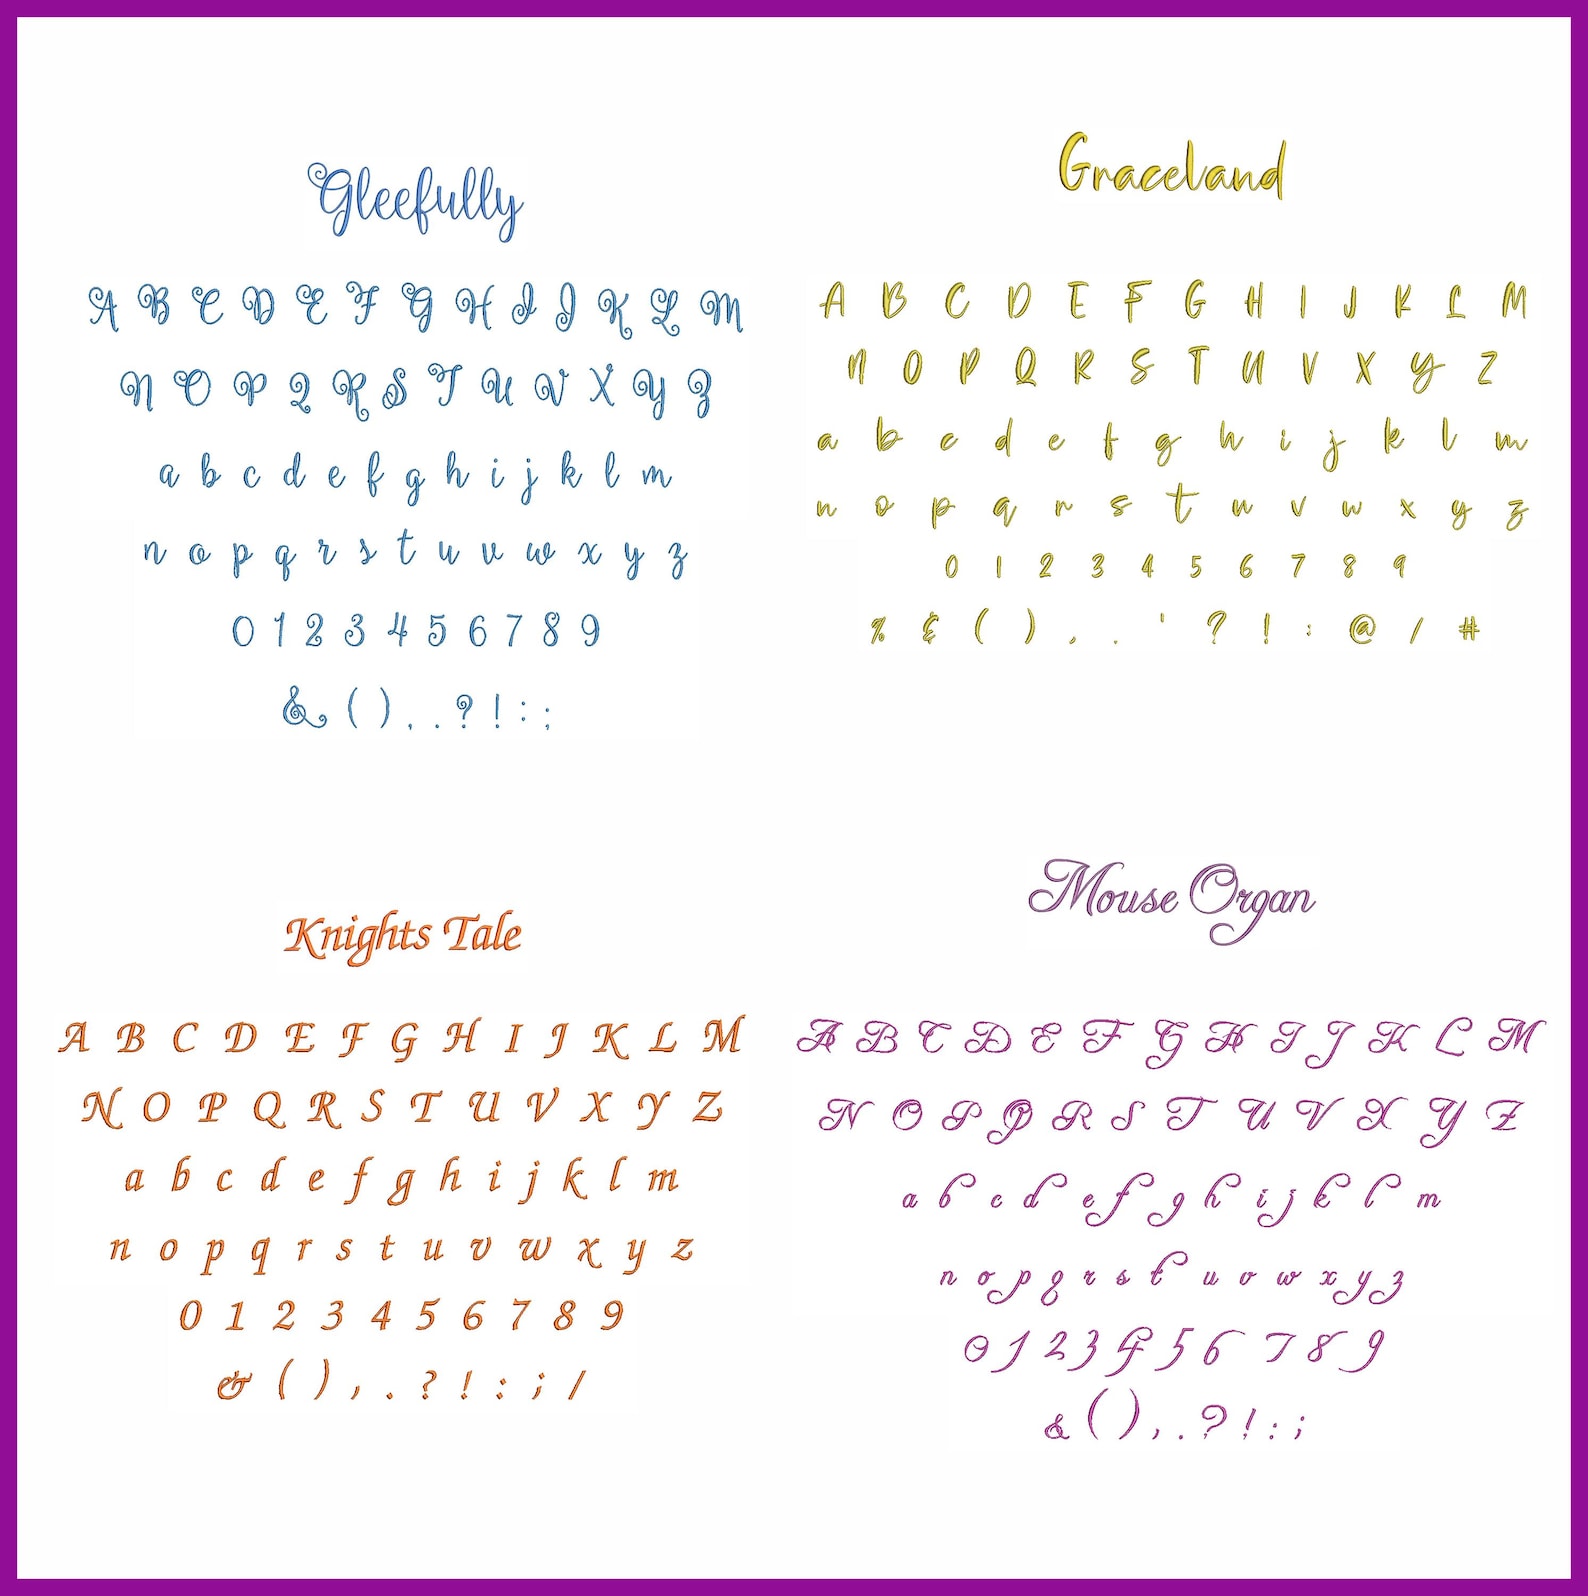 Gleefully
A B C D E F G H I J K L M
N O P Q R S T U V X Y Z
a b c d e f g h i j k l m
n o p q r s t u v w x y z
0 1 2 3 4 5 6 7 8 9
& ( ) , . ? ! : ;
Graceland
A B C D E F G H I J K L M
N O P Q R S T U V X Y Z
a b c d e f g h i j k l m
n o p q r s t u v w x y z
0 1 2 3 4 5 6 7 8 9
% & ( ) , . ' ? ! : @ / #
Knights Tale
A B C D E F G H I J K L M
N O P Q R S T U V X Y Z
a b c d e f g h i j k l m
n o p q r s t u v w x y z
0 1 2 3 4 5 6 7 8 9
& ( ) , . ? ! : ; /
Mouse Organ
A B C D E F G H I J K L M
N O P Q R S T U V X Y Z
a b c d e f g h i j k l m
n o p q r s t u v w x y z
0 1 2 3 4 5 6 7 8 9
& ( ) , . ? ! : ;